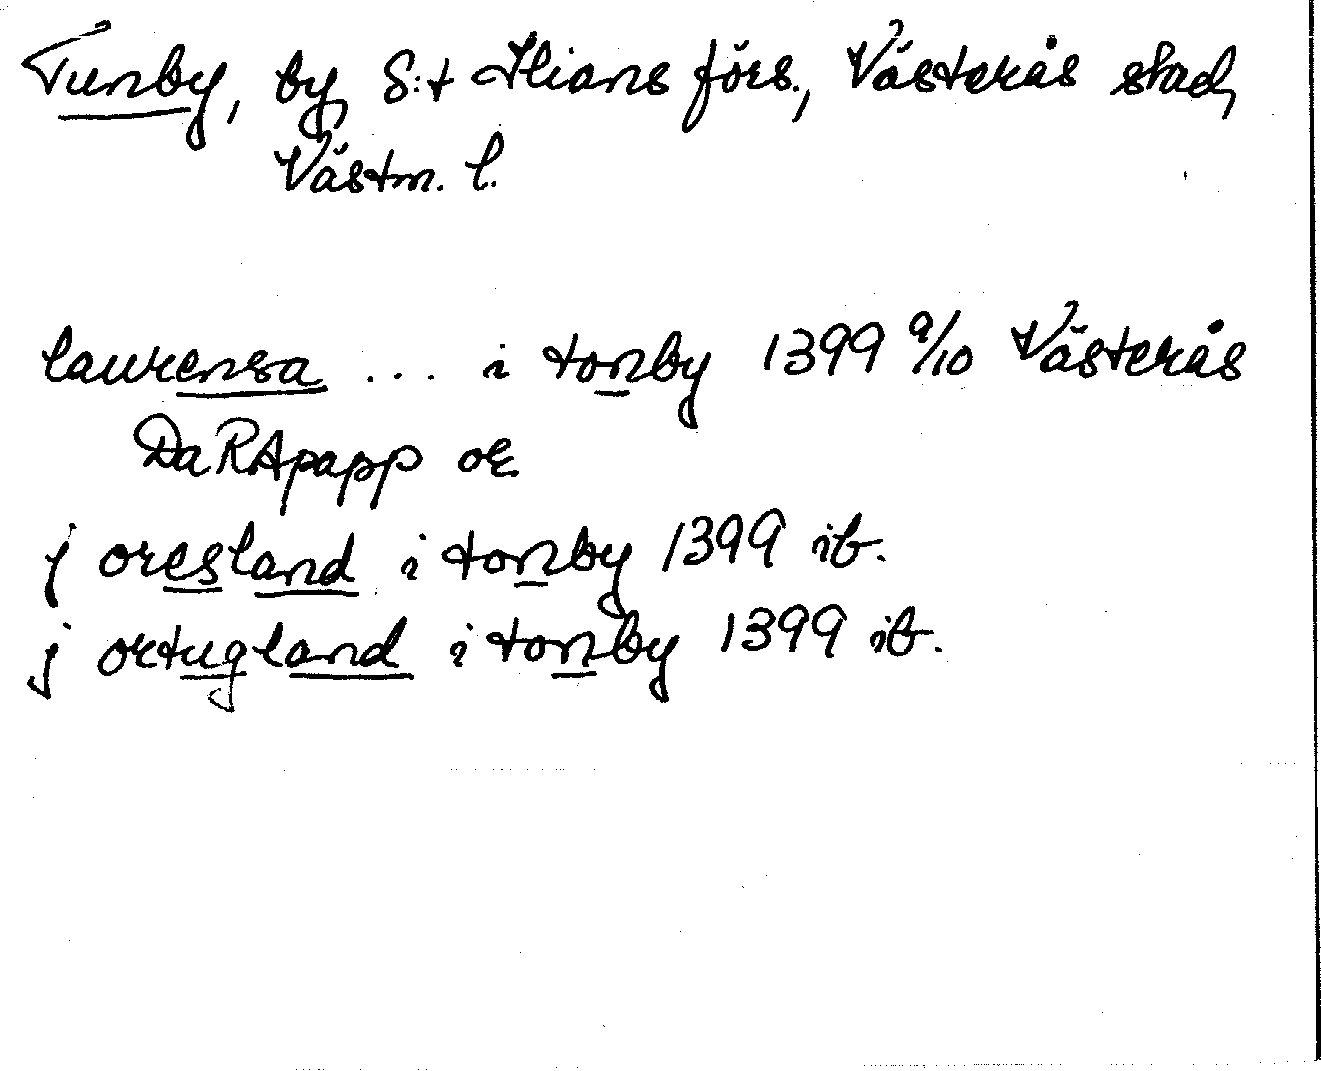 Tunby, by, S:t Ilians förs., Västerås stad,
Västm. l.
laurensa ... i tonby 1399 9/10 Västerås
DaRApapp or.
j oresland i tonby 1399 ib.
j ortugland i tonby 1399 ib.